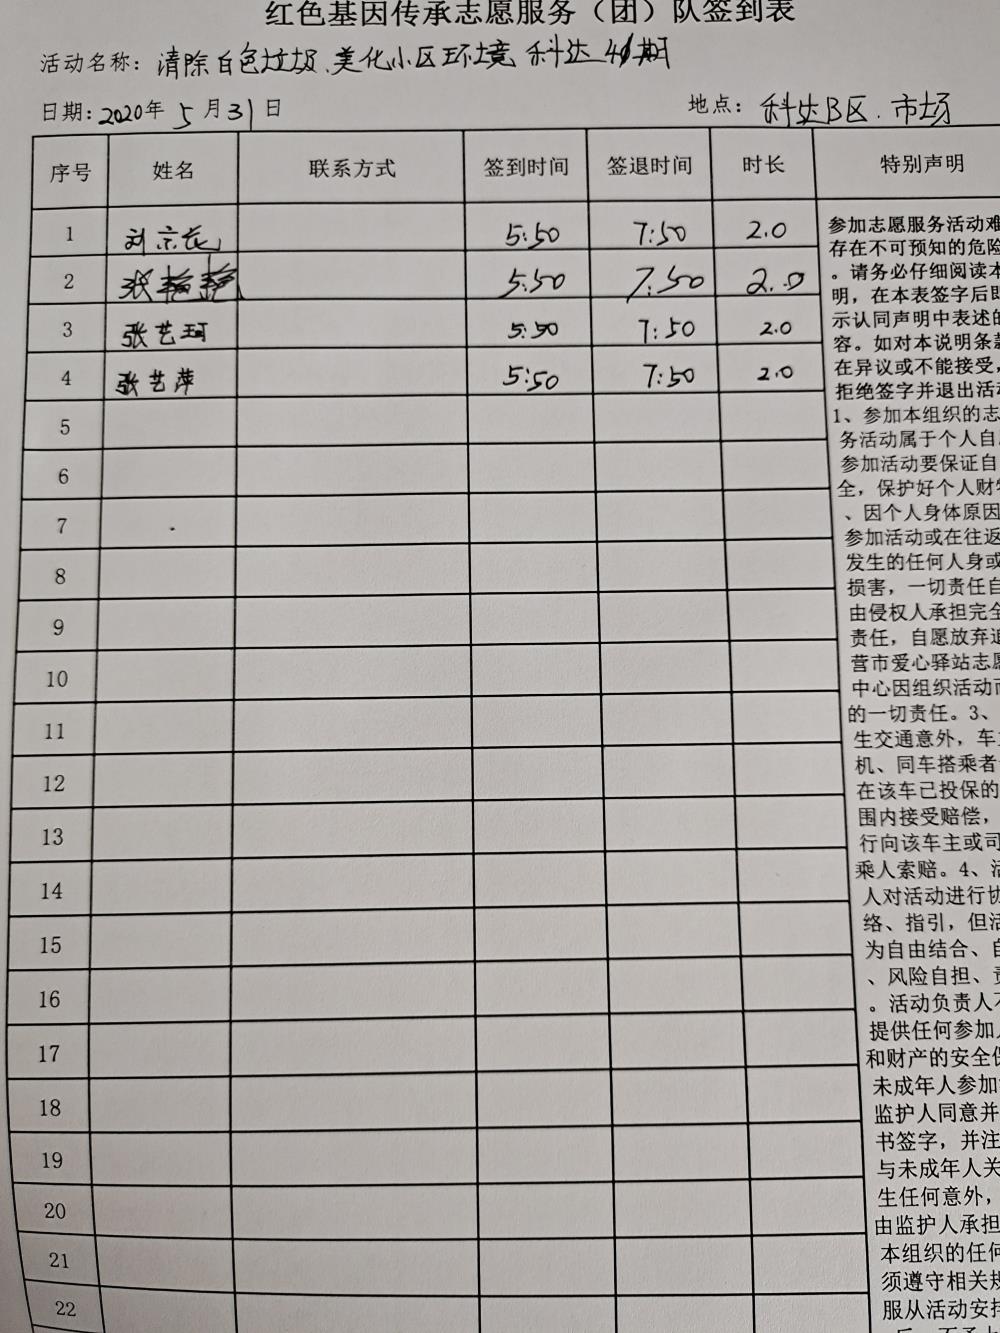 红色基因传承志愿服务（团）队签到表
活动名称：清除白色垃圾、美化小区环境 科达41期
日期：2020年5月31日 地点：科达B区.市场
序号 姓名 联系方式 签到时间 签退时间 时长 特别声明
1 刘宗花 5:50 7:50 2.0
2 张艳艳 5:50 7:50 2.0
3 张艺珂 5:50 7:50 2.0
4 张艺萍 5:50 7:50 2.0
5
6
7
8
9
10
11
12
13
14
15
16
17
18
19
20
21
22
参加志愿服务活动难
存在不可预知的危险
。请务必仔细阅读本
明，在本表签字后即
示认同声明中表述的
容。如对本说明条款
在异议或不能接受，
拒绝签字并退出活动
1、参加本组织的志
务活动属于个人自愿
参加活动要保证自
全，保护好个人财物
、因个人身体原因
参加活动或在往返
发生的任何人身或
损害，一切责任自
由侵权人承担完全
责任，自愿放弃追
营市爱心驿站志愿
中心因组织活动而
的一切责任。3、
生交通意外，车主
机、同车搭乘者
在该车已投保的
围内接受赔偿，
行向该车主或司
乘人索赔。4、活
人对活动进行协
络、指引，但活
为自由结合、自
、风险自担、责
。活动负责人不
提供任何参加人
和财产的安全保
未成年人参加
监护人同意并
书签字，并注
与未成年人关
生任何意外，
由监护人承担
本组织的任何
须遵守相关规
服从活动安排